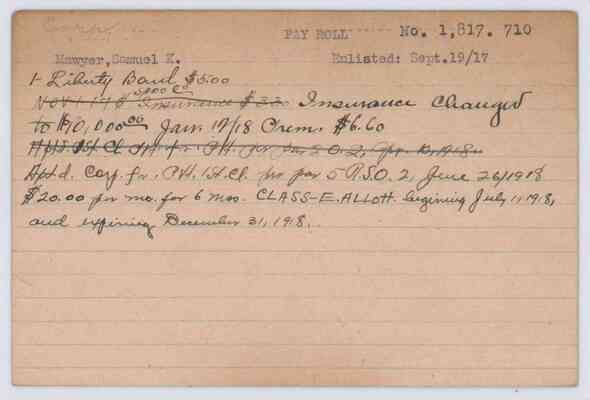 Corp.
PAY ROLL No. 1,817. 710
Mawyer, Samuel K. Enlisted: Sept.19/17
1- Liberty Bond $5.00
Nov 1 17 $5000.00 Insurance $3.30 Insurance Changed
to $10,000.00 Jan. 19/18 Prem. $6.60
Aptd. 1st Cl. Pvt. fr. Pvt. per
Aptd. Corp. fr. Pvt. 1st. Cl. per par 5 R.S.O. 2, June 26/1918
$20.00 per mo. for 6 mos. CLASS-E. ALLOTT. begining July 1, 1918,
and expiring December 31, 1918.